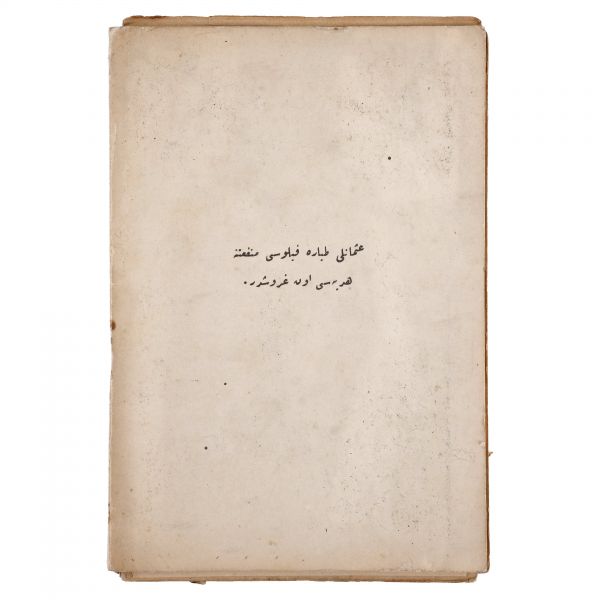 عثمانلی طیاره فیلوسی منفعتنه
هدیه‌سی اون غروشدر.